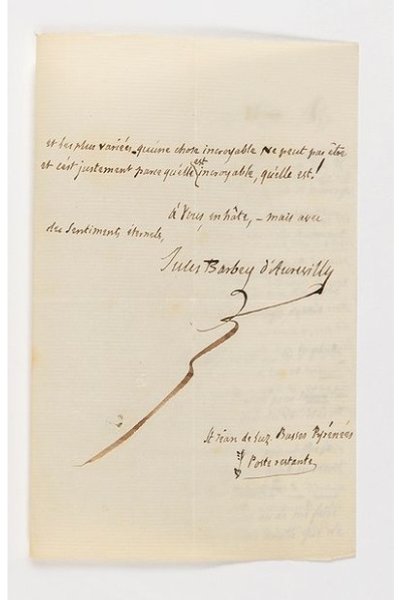 et les plus variées qu'une chose incroyable ne peut pas être
et c'est justement parce qu'elle est incroyable, qu'elle est!
à Vous, en hâte, – mais avec
des Sentiments éternels,
Jules Barbey d'Aurevilly
St Jean de Luz. Basses Pyrénées
Poste restante